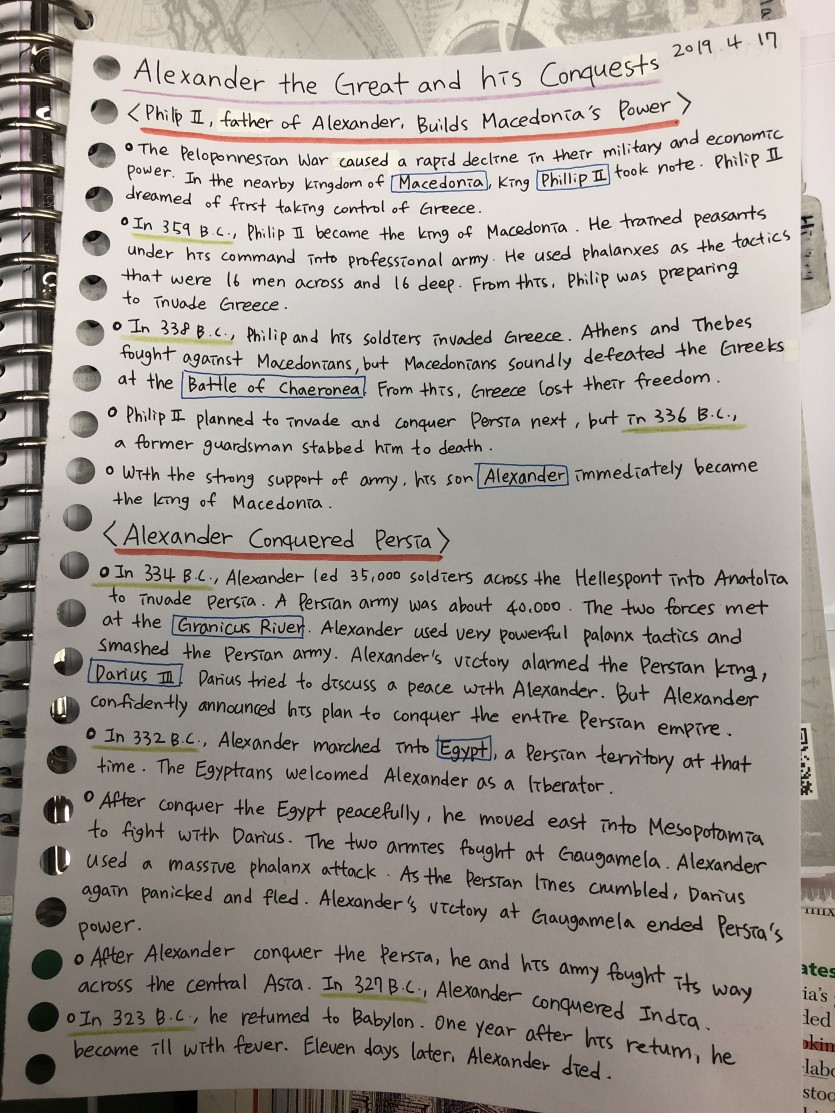 2019. 4. 17
Alexander the Great and his Conquests
<Philip II, father of Alexander, Builds Macedonia's Power>
o The Peloponnesian War caused a rapid decline in their military and economic
power. In the nearby kingdom of Macedonia, king Phillip II took note. Philip II
dreamed of first taking control of Greece.
o In 359 B.C., Philip II became the king of Macedonia. He trained peasants
under his command into professional army. He used phalanxes as the tactics
that were 16 men across and 16 deep. From this, Philip was preparing
to invade Greece.
o In 338 B.C., Philip and his soldiers invaded Greece. Athens and Thebes
fought against Macedonians, but Macedonians soundly defeated the Greeks
at the Battle of Chaeronea. From this, Greece lost their freedom.
o Philip II planned to invade and conquer Persia next, but in 336 B.C.,
a former guardsman stabbed him to death.
o With the strong support of army, his son Alexander immediately became
the king of Macedonia.
<Alexander Conquered Persia>
o In 334 B.C., Alexander led 35,000 soldiers across the Hellespont into Anatolia
to invade Persia. A Persian army was about 40.000. The two forces met
at the Granicus River. Alexander used very powerful palanx tactics and
smashed the Persian army. Alexander's victory alarmed the Persian king,
Darius III. Darius tried to discuss a peace with Alexander. But Alexander
confidently announced his plan to conquer the entire Persian empire.
o In 332 B.C., Alexander marched into Egypt, a Persian territory at that
time. The Egyptians welcomed Alexander as a liberator.
o After conquer the Egypt peacefully, he moved east into Mesopotamia
to fight with Darius. The two armies fought at Gaugamela. Alexander
used a massive phalanx attack. As the Persian lines crumbled, Darius
again panicked and fled. Alexander's victory at Gaugamela ended Persia's
power.
o After Alexander conquer the Persia, he and his army fought its way
across the central Asia. In 327 B.C., Alexander conquered India.
o In 323 B.C., he returned to Babylon. One year after his return, he
became ill with fever. Eleven days later, Alexander died.